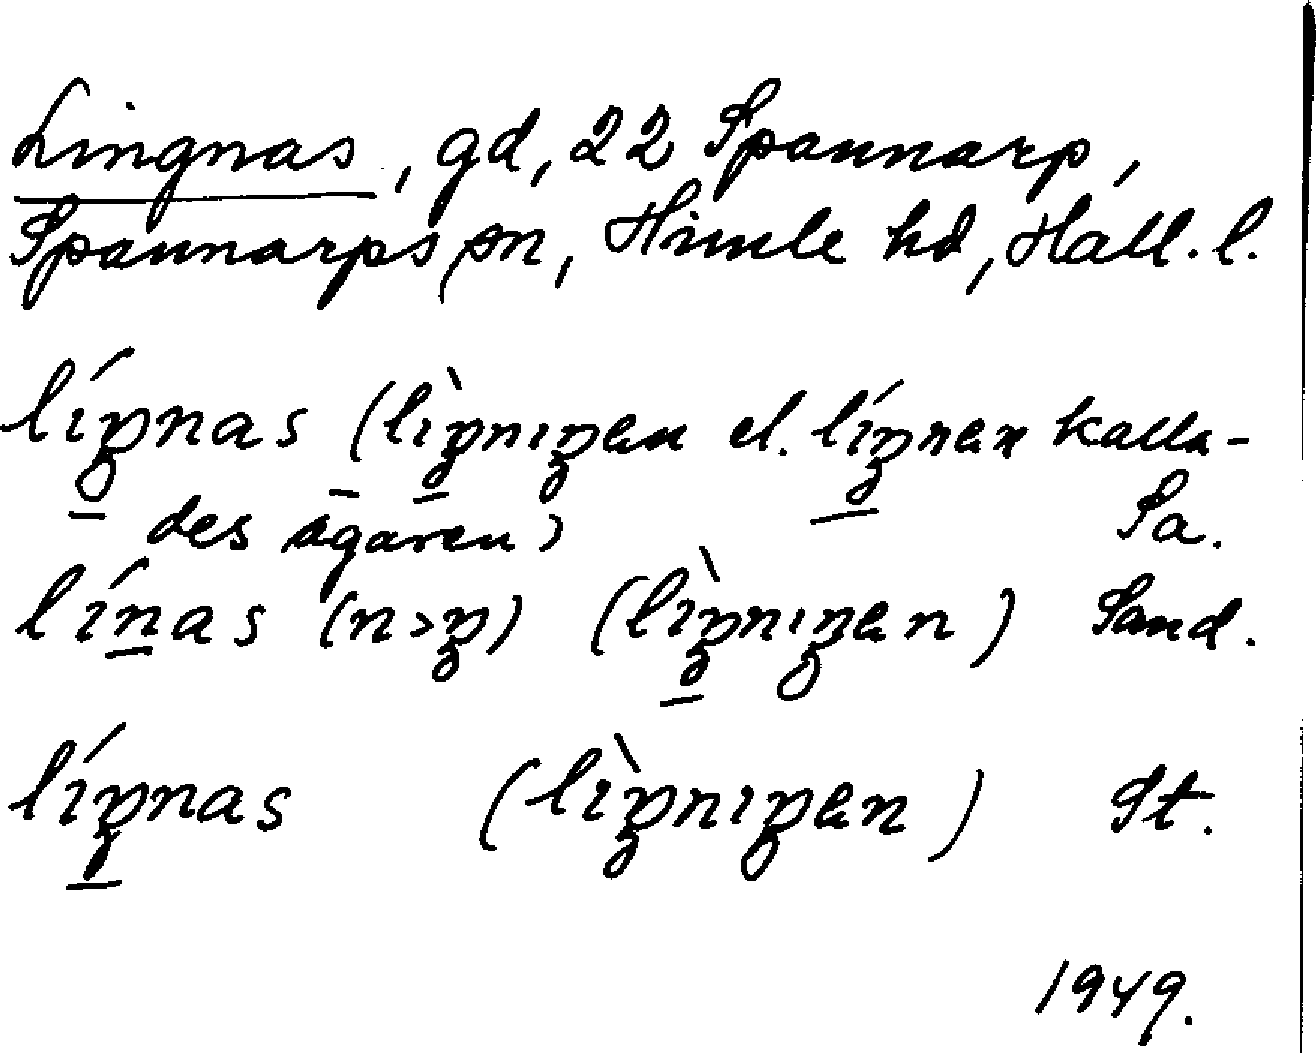 Lingnas, gd, 22 Spannarp,
Spannarps sn, Himle hd, Hall. l.
líŋnas (lìŋnıŋan el. líŋnan kalla-
des ägaren) Sa.
línas (n>ŋ) (lìŋnıŋan) Sand.
líŋnas (lìŋnıŋan) St.
1949.